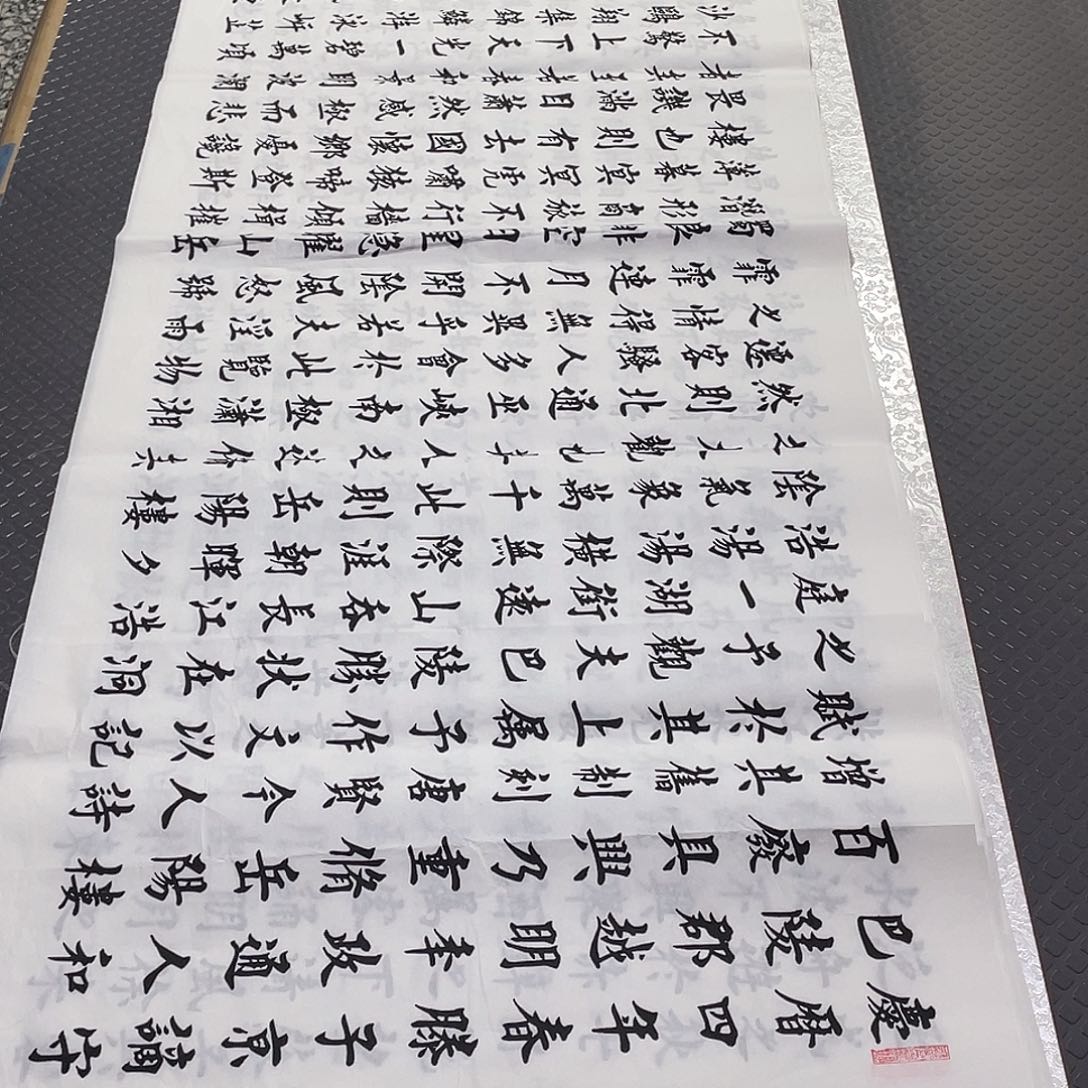 慶曆四年春滕子京謫守
巴陵郡越明年政通人和
百廢具興乃重脩岳陽樓
增其舊制刻唐賢今人詩
賦於其上屬予作文以記
之予觀夫巴陵勝狀在洞
庭一湖銜遠山吞長江浩
浩湯湯橫無際涯朝暉夕
陰氣象萬千此則岳陽樓
之大觀也前人之述備矣
然則北通巫峽南極瀟湘
遷客騷人多會於此覽物
之情得無異乎若夫淫雨
霏霏連月不開陰風怒號
濁浪排空日星隱曜山岳
潛形商旅不行檣傾楫摧
薄暮冥冥虎嘯猿啼登斯
樓也則有去國懷鄉憂讒
畏譏滿目蕭然感極而悲
者矣至若春和景明波瀾
不驚上下天光一碧萬頃
沙鷗翔集錦鱗游泳岸芷